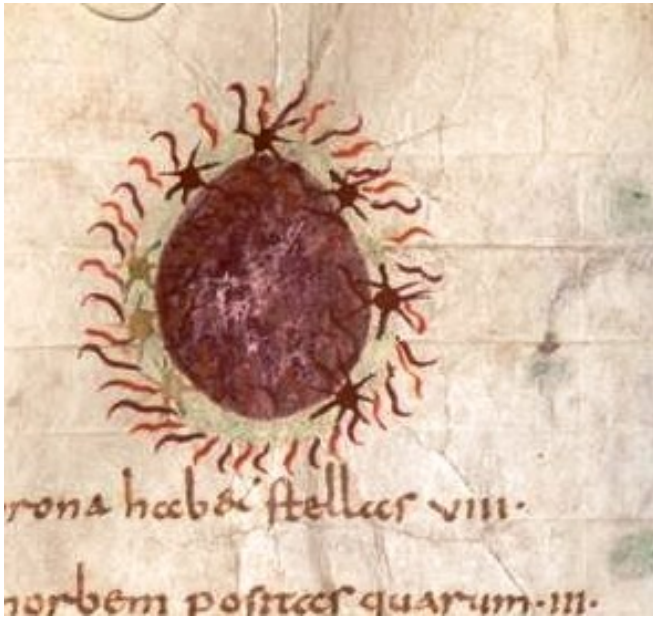 orona hab& stellas viii·
norbem positas quarum·iii·